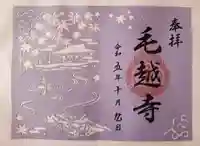 奉拝
毛越寺
令和五年十月